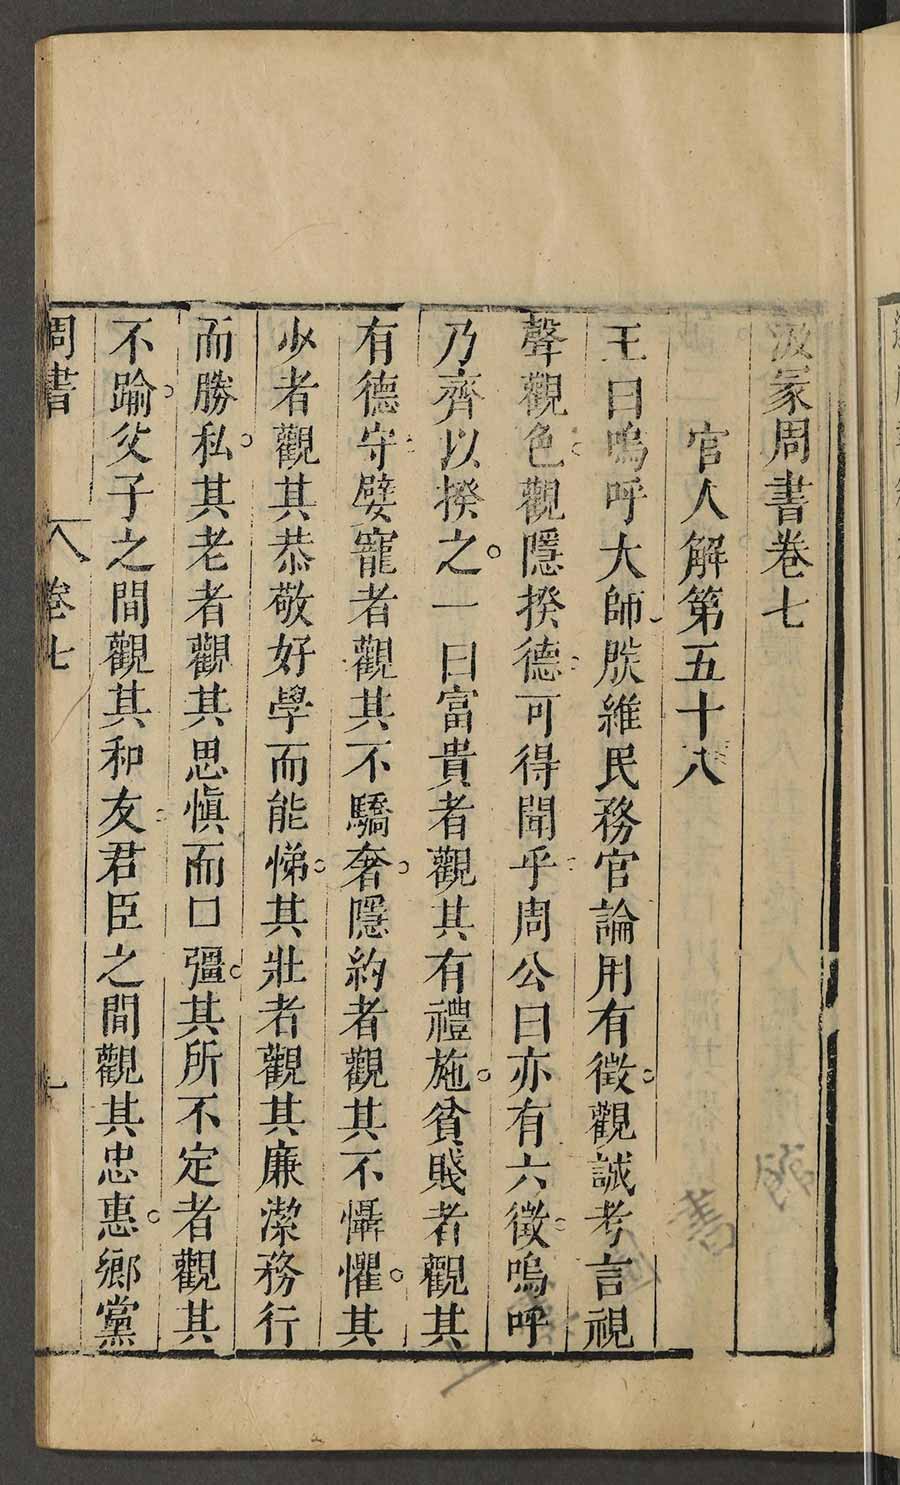 汲冢周書卷七
官人解第五十八
王曰嗚呼大師朕維民務官論用有徵觀誠考言視
聲觀色觀隱揆德可得聞乎周公曰亦有六徵嗚呼
乃齊以揆之一曰富貴者觀其有禮施貧賤者觀其
有德守嬖寵者觀其不驕奢隱約者觀其不懾懼其
少者觀其恭敬好學而能悌其壯者觀其廉潔務行
而勝私其老者觀其思慎而口彊其所不定者觀其
不踰父子之間觀其和友君臣之間觀其忠惠鄉黨
周書 卷七 一